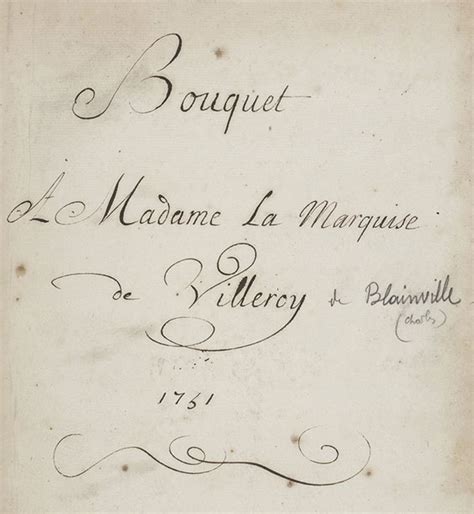 Bouquet
A Madame La Marquise
de Villeroy de Blainville
(Charles)
1751